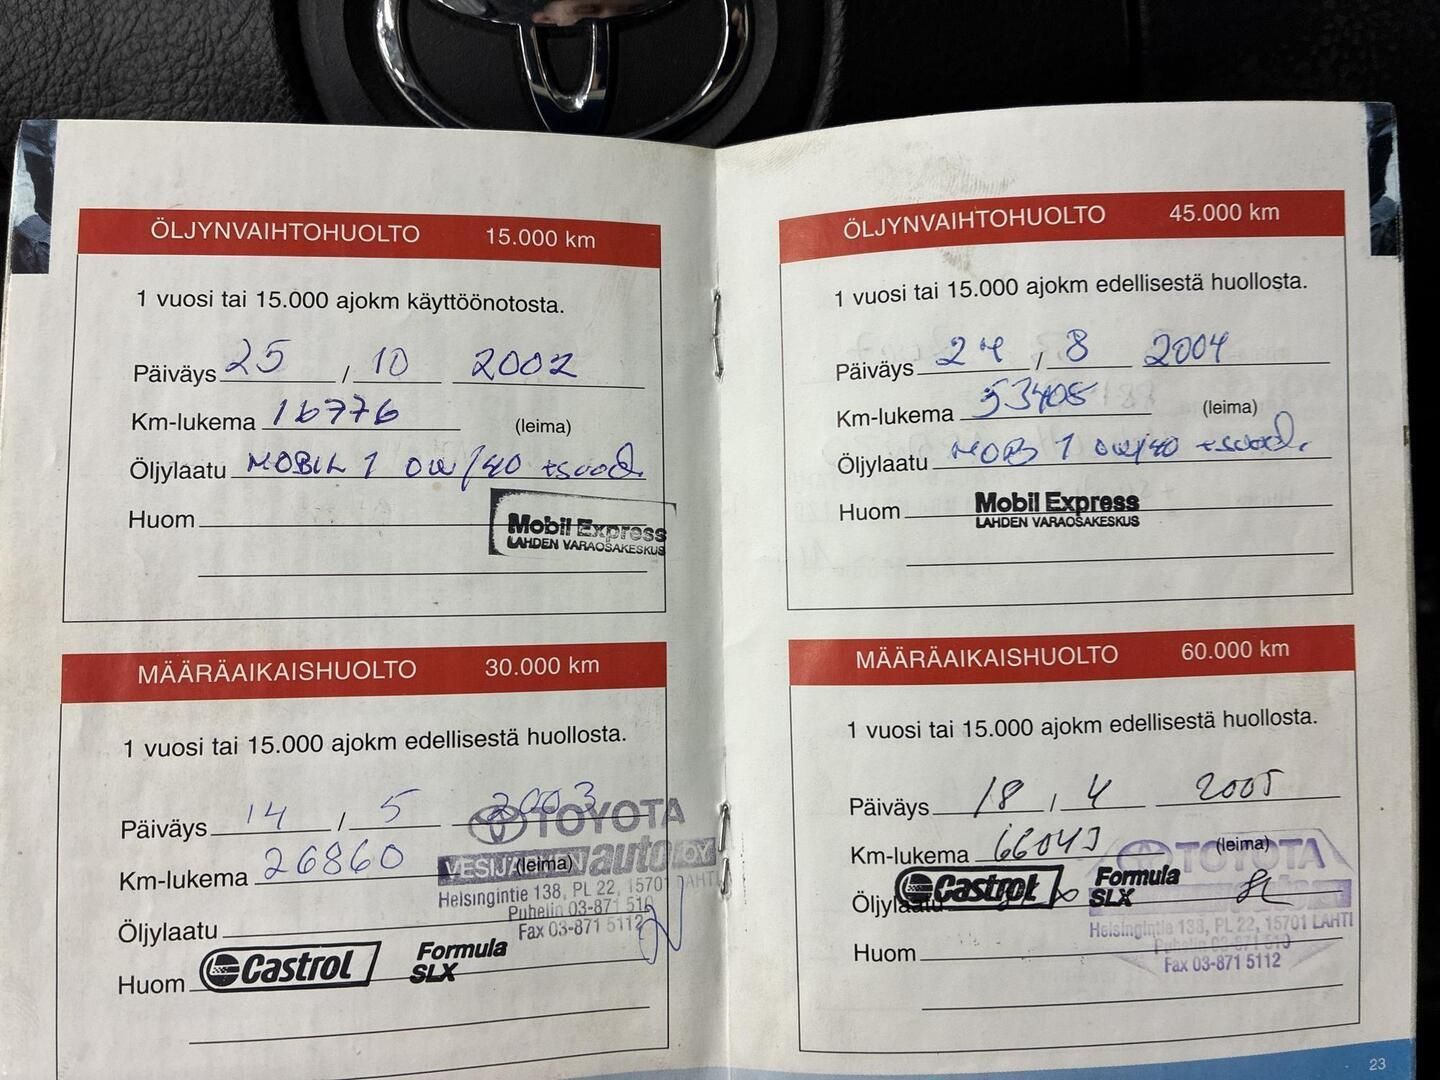 ÖLJYNVAIHTOHUOLTO 15.000 km
1 vuosi tai 15.000 ajokm käyttöönotosta.
Päiväys 25 / 10 2002
Km-lukema 16776 (leima)
Öljylaatu MOBIL 1 0W/40 +suod.
Huom
Mobil Express
LAHDEN VARAOSAKESKUS
MÄÄRÄAIKAISHUOLTO 30.000 km
1 vuosi tai 15.000 ajokm edellisestä huollosta.
Päiväys 14 / 5 2003
TOYOTA
Km-lukema 26860 (leima)
VESIJÄRVEN auto OY
Helsingintie 138, PL 22, 15701 LAHTI
Puhelin 03-871 510
Öljylaatu
Fax 03-871 5112
Huom Castrol Formula
SLX
ÖLJYNVAIHTOHUOLTO 45.000 km
1 vuosi tai 15.000 ajokm edellisestä huollosta.
Päiväys 24 / 8 2004
Km-lukema 53405 (leima)
Öljylaatu MOB 1 0W/40 +suod.
Huom
Mobil Express
LAHDEN VARAOSAKESKUS
MÄÄRÄAIKAISHUOLTO 60.000 km
1 vuosi tai 15.000 ajokm edellisestä huollosta.
Päiväys 18 / 4 2005
Km-lukema 66043 (leima)
TOYOTA
Öljylaatu Castrol Formula
SLX
Helsingintie 138, PL 22, 15701 LAHTI
Puhelin 03-871 510
Huom
Fax 03-871 5112
23